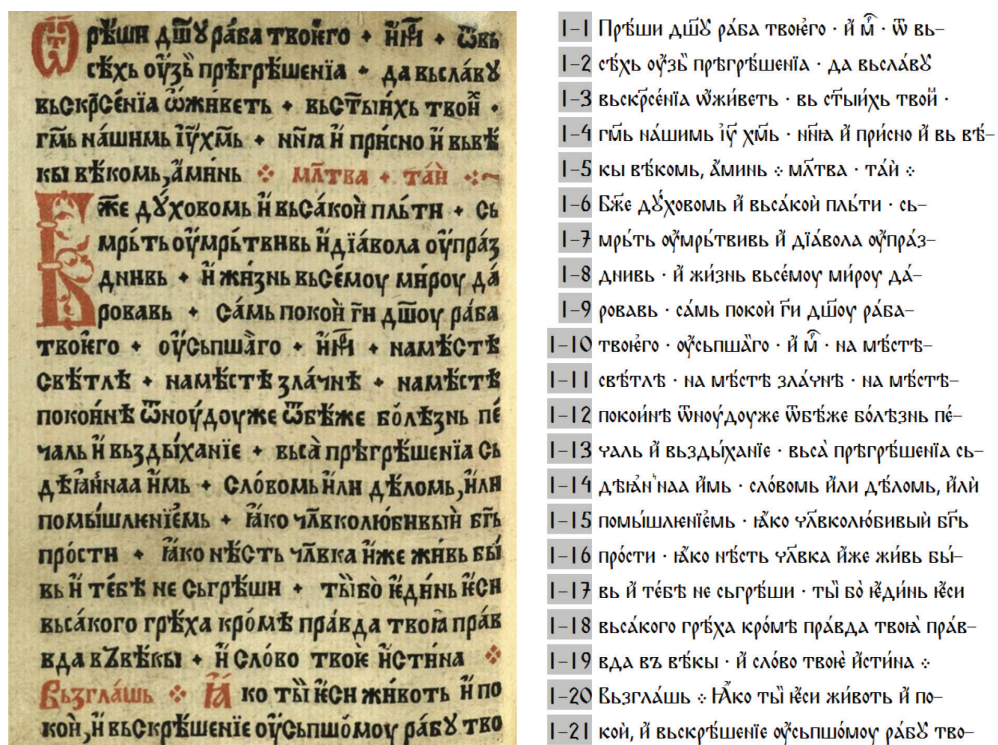 Ѿрѣ́ши дш҃ꙋ ра́ба твоѥ҆го · и҆ и҆м҃к · ѿ вь
сѣ́хь оу҆́зь̀ прѣгрѣ́шенїа · да вьсла́вꙋ
вьскрⷭ҇е́нїа ѡ҆жи́веть · вь ст҃ы́их̑ь твои҆̆ ·
гм҃ь на́шимь і҆ѵ҃хм҃ь · нн҃ꙗ и҆ при́сно и҆ вь вѣ́
кы вѣ́комь, а҆́минь ⁘ мл҃тва · та́и҆ ⁘~
Бж҃е дꙋ́ховомь и҆ вьса́кои пль́ти · сь
мрь́ть оу҆мрь́твивь и҆ дїа́вола оу҆пра́з
днивь · и҆ жи́знь вьсе́моу ми́роу да́
ровавь · са́мь покои҆ ги҃ дш҃оу ра́ба
твоѥ҆го · оу҆́сьпша̀го · и҆ и҆м҃к · на мѣ́стѣ
свѣ́тлѣ · на мѣ́стѣ зла́чнѣ · на мѣ́стѣ
покои́нѣ ѿноу́доуже ѿбѣ́же бо́лѣзнь пе́
чаль и҆ вьзды́ханїе · вьса̀ прѣгрѣ́шенїа сь
дѣꙗ҆́ннаа и҆́мь · сло́вомь и҆́ли дѣ́ломь, и҆́ли
помы́шлѥнїе́мь · ꙗ҆́ко чл҃вколю́бивыи҆ бг҃ь
про́сти · ꙗ҆́ко нѣ́сть чл҃вка и҆́же жи́вь бы́
вь и҆ те́бѣ не сьгрѣ́ши · ты̀ бо̀ ѥ҆ди́нь ѥ҆́си
вьса́кого грѣ́ха кро́мѣ пра́вда твоꙗ҆ пра́в
вда вꙁ вѣ́кы · и҆ сло́во твоѥ҆ и҆́стина ⁘
Вьзгла́шь ⁘ Ꙗ҆́ко ты̀ ѥ҆́си жи́воть и҆ по
кои҆, и҆ вьскрѣ́шенїе оу҆́сьпшо́моу ра́бꙋ тво
1-1 Прѣ́ши дш҃ꙋ ра́ба твоѥ҆го · и҆ м҃ · ѿ вь–
1-2 сѣ́хь оу҆́зь̀ прѣгрѣ́шенїа · да вьсла́вꙋ
1-3 вьскрⷭ҇е́нїа ѡ҆жи́веть · вь ст҃ы́их̑ь твои҆̆ ·
1-4 гм҃ь на́шимь і҆ѵ҃ хм҃ь · нн҃ꙗ и҆ при́сно и҆ вь вѣ́–
1-5 кы вѣ́комь, а҆́минь ⁘ мл҃тва · та́и҆ ⁘
1-6 Бж҃е дꙋ́ховомь и҆ вьса́кои пль́ти · сь–
1-7 мрь́ть оу҆мрь́твивь и҆ дїа́вола оу҆пра́з–
1-8 днивь · и҆ жи́знь вьсе́моу ми́роу да́–
1-9 ровавь · са́мь покои҆ ги҃ дш҃оу ра́ба–
1-10 твоѥ҆го · оу҆́сьпша̀го · и҆ м҃ · на мѣ́стѣ–
1-11 свѣ́тлѣ · на мѣ́стѣ зла́чнѣ · на мѣ́стѣ–
1-12 покои́нѣ ѿноу́доуже ѿбѣ́же бо́лѣзнь пе́–
1-13 чаль и҆ вьзды́ханїе · вьса̀ прѣгрѣ́шенїа сь–
1-14 дѣꙗ҆́н'наа и҆́мь · сло́вомь и҆́ли дѣ́ломь, и҆́лѝ
1-15 помы́шлѥнїе́мь · ꙗ҆́ко чл҃вколю́бивыи҆ бг҃ь
1-16 про́сти · ꙗ҆́ко нѣ́сть чл҃вка и҆́же жи́вь бы́–
1-17 вь и҆ те́бѣ не сьгрѣ́ши · ты̀ бо̀ ѥ҆ди́нь ѥ҆́си
1-18 вьса́кого грѣ́ха кро́мѣ пра́вда твоꙗ҆ пра́в–
1-19 вда въ вѣ́кы · и҆ сло́во твоѥ҆ и҆́стина ⁘
1-20 Вьзгла́шь ⁘ Ꙗ҆́ко ты̀ ѥ҆́си жи́воть и҆ по–
1-21 кои҆, и҆ вьскрѣ́шенїе оу҆́сьпшо́моу ра́бꙋ тво–